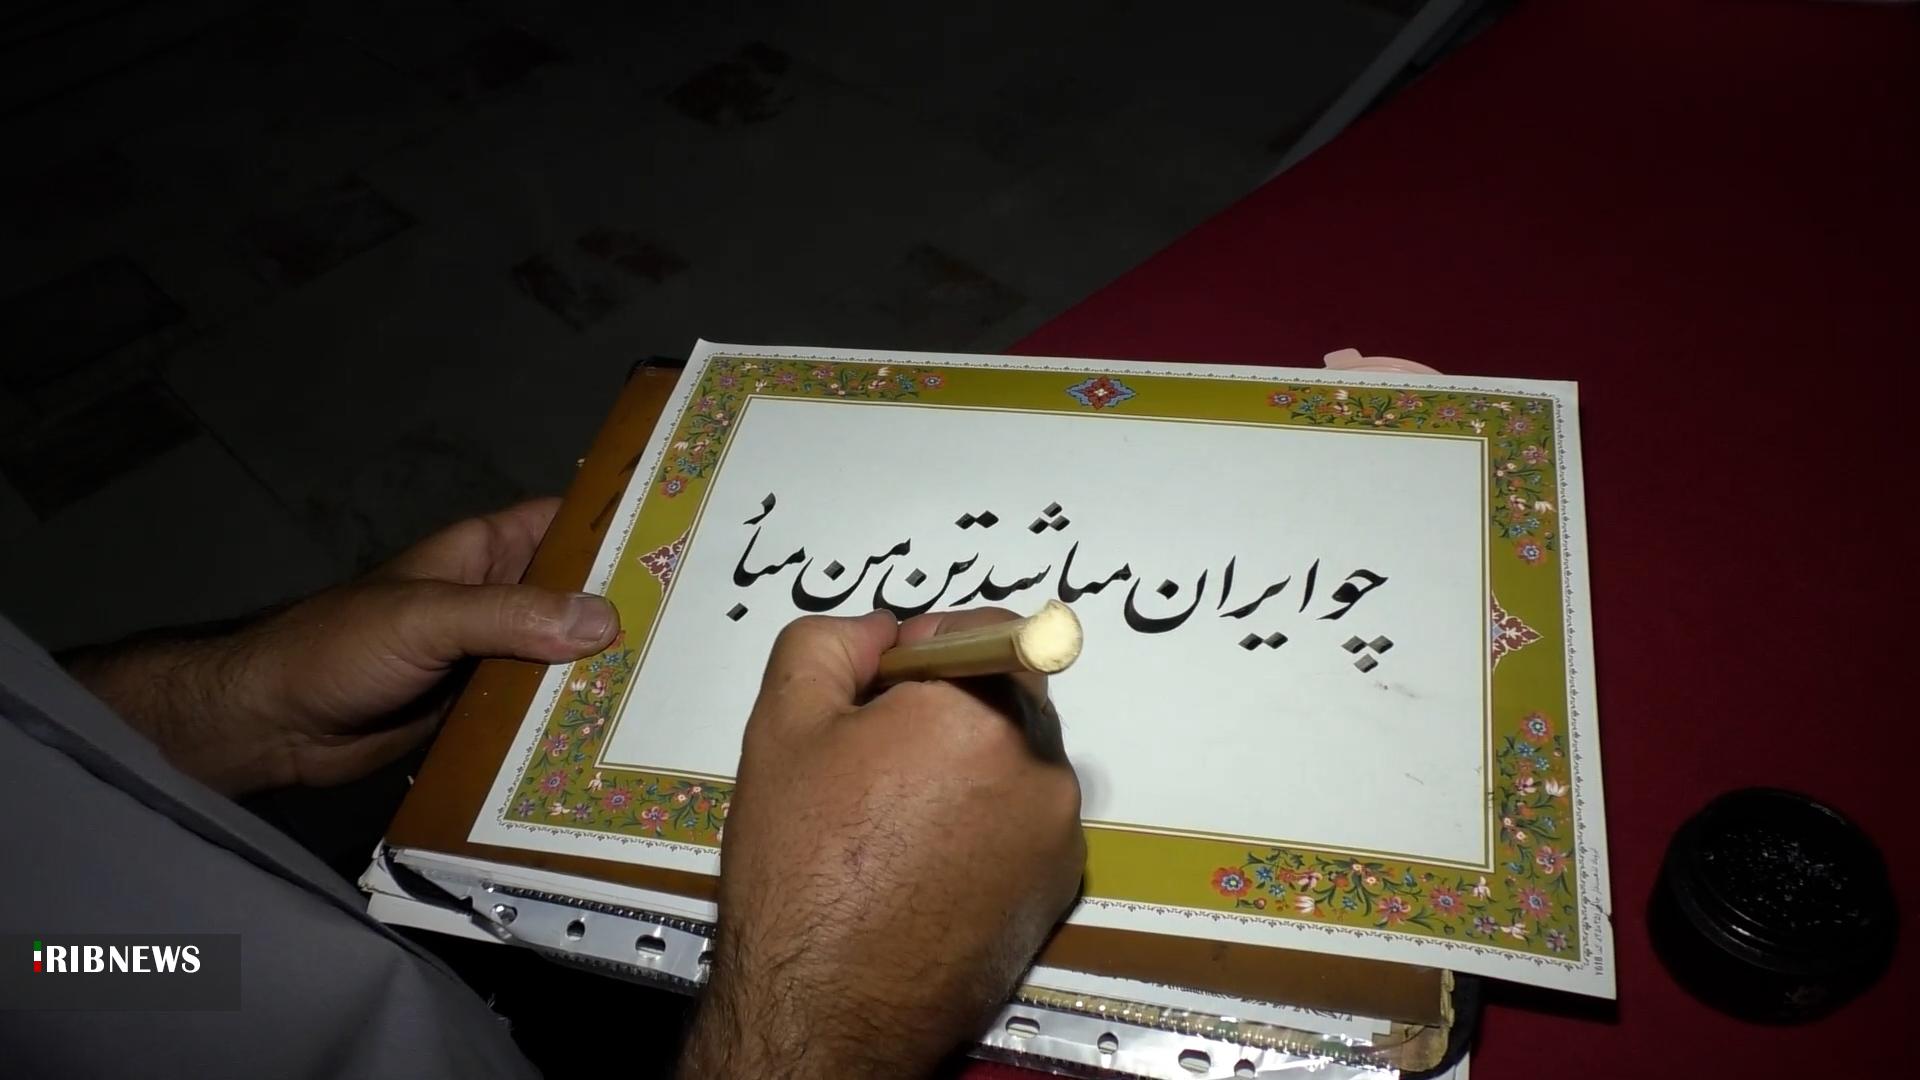 چو ایران مباشد تن من مباد
IRIBNEWS